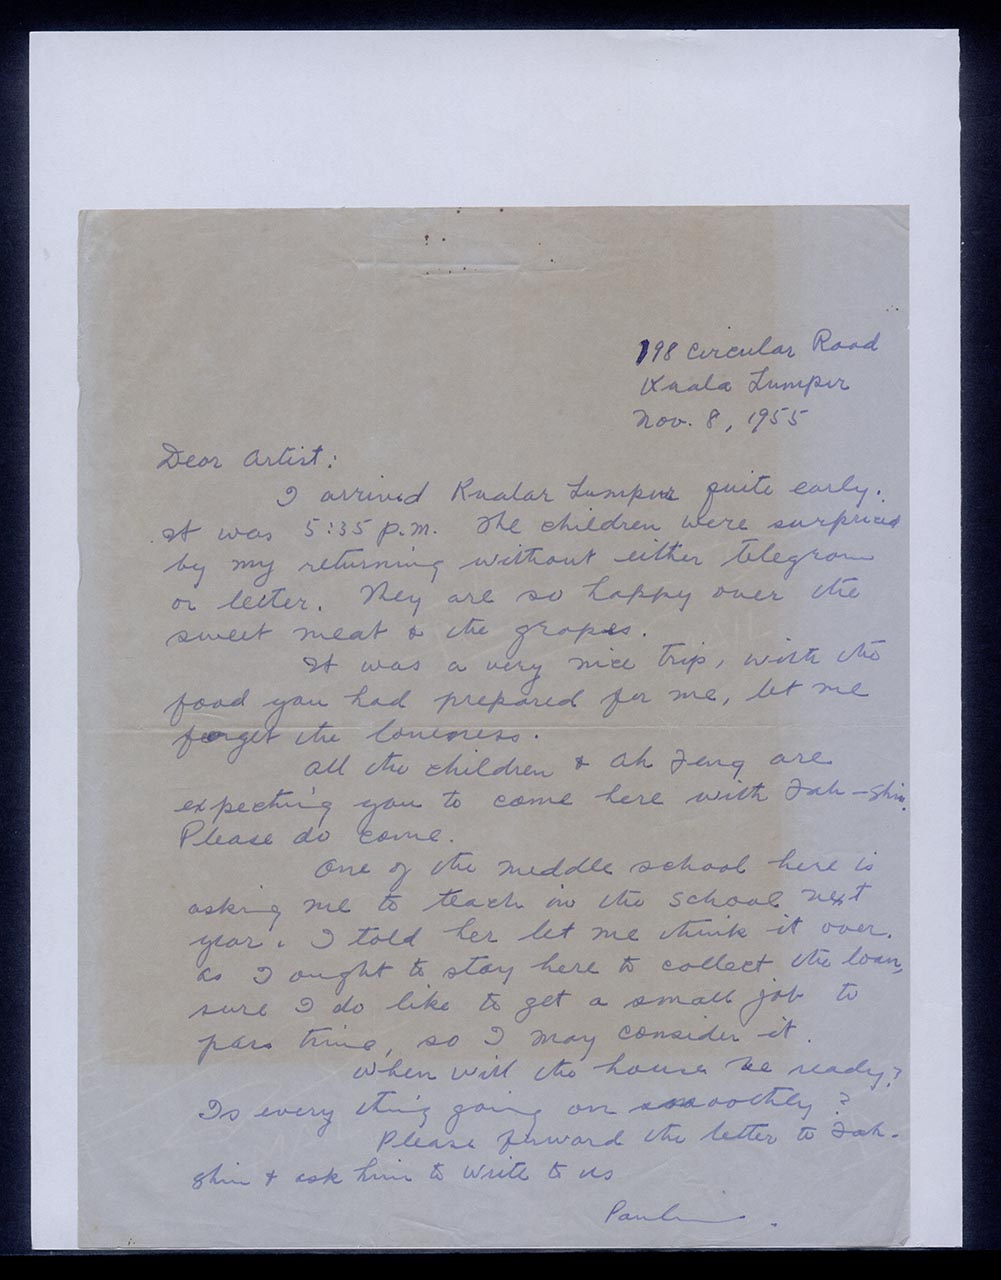 198 Circular Road
Kuala Lumpur
Nov. 8, 1955
Dear Artist:
I arrived Kualar Lumpur quite early.
It was 5:35 p.m. The children were surprised
by my returning without either telegram
or letter. They are so happy over the
sweet meat & the grapes.
It was a very nice trip, with the
food you had prepared for me, let me
forget the loneness.
All the children & Ah Feng are
expecting you to come here with Fah-Shin.
Please do come.
One of the middle school here is
asking me to teach in the school next
year. I told her let me think it over.
As I ought to stay here to collect the loan,
sure I do like to get a small job to
pass time, so I may consider it.
When will the house be ready?
Is every thing going on smoothly?
Please forward the letter to Fah-
shin & ask him to write to us
Pauline.